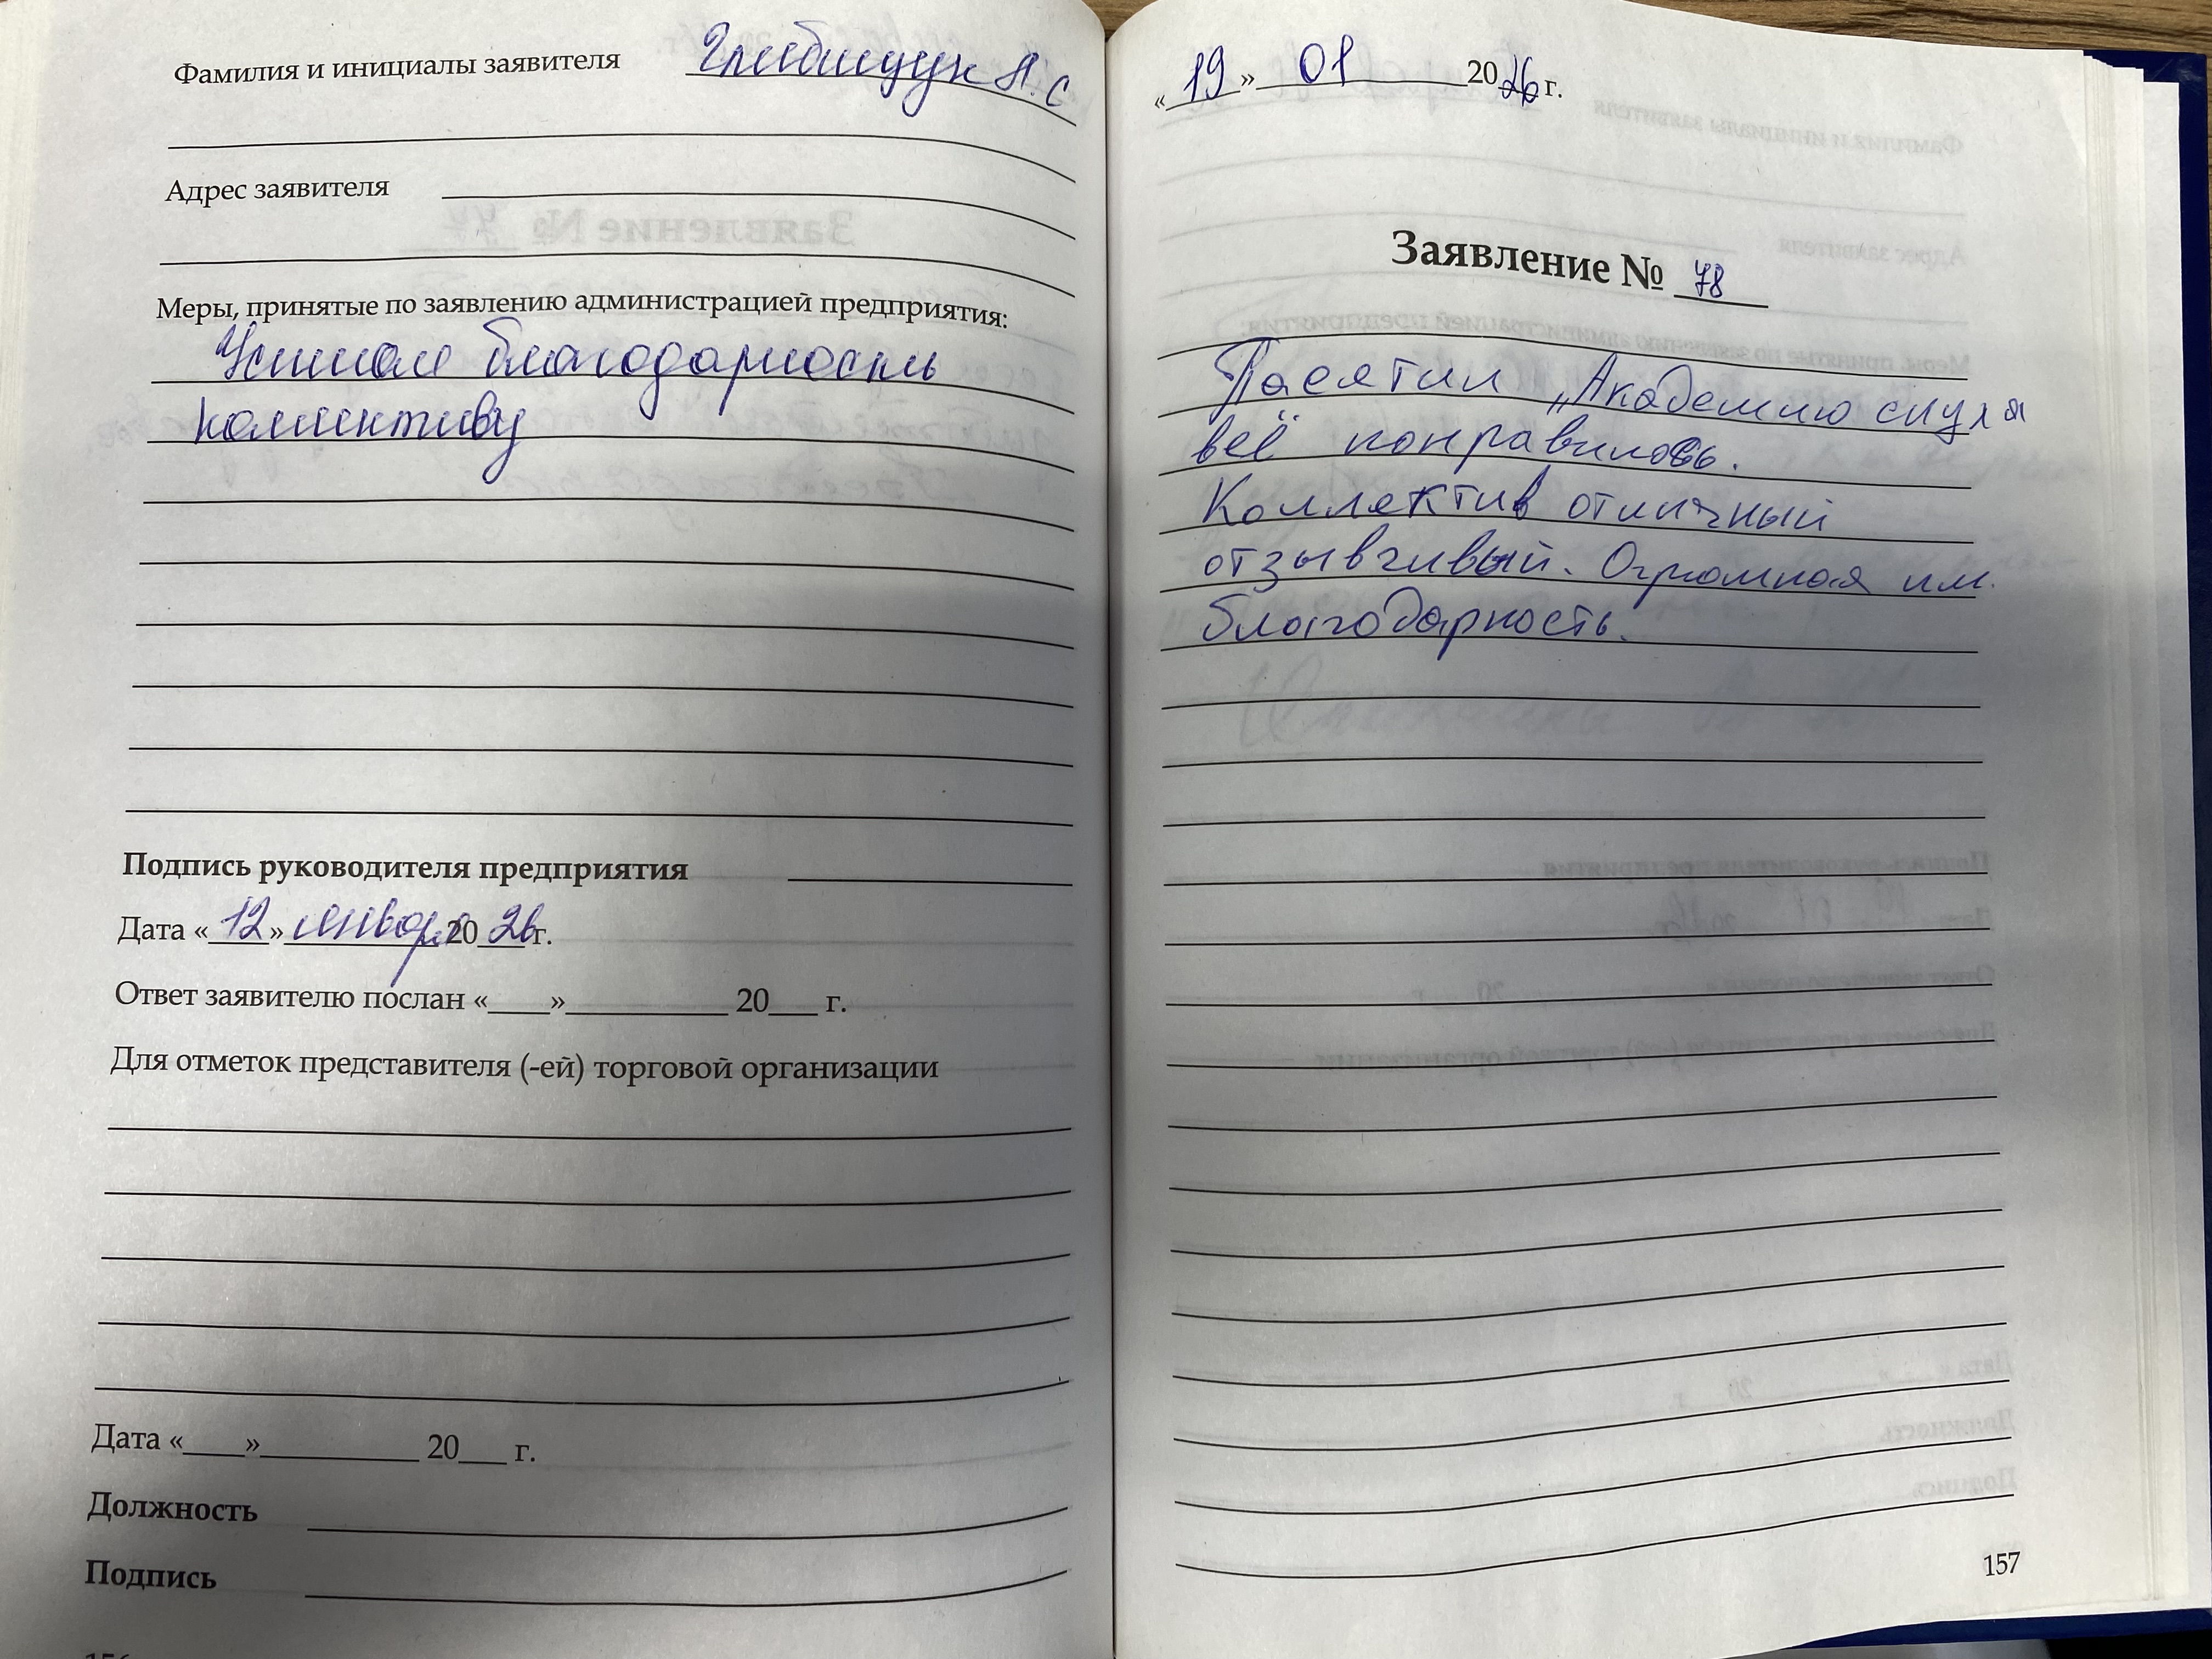 Фамилия и инициалы заявителя
Адрес заявителя
Меры, принятые по заявлению администрацией предприятия:
благодарность
Подпись руководителя предприятия
Дата «12» января 2026 г.
Ответ заявителю послан «____»__________ 20___ г.
Для отметок представителя (-ей) торговой организации
Дата «____»__________ 20___ г.
Должность
Подпись
«19» 01 2026 г.
Заявление № 78
„Академию слуха
всё понравилось.
Коллектив отличный
отзывчивый. Огромная им.
благодарность.
157